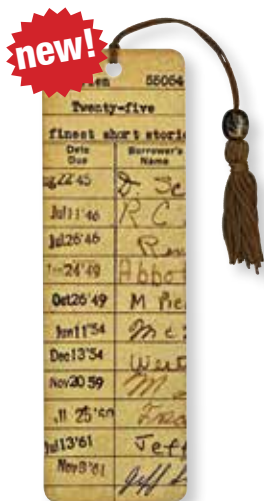 new!
55054
Twenty-five
finest short storie
Date Due Borrower's Name
22'45 D. Sc
Jul11'46 R C
Jul26'46 Re
24'49 Abbot
Oct26'49 M Pie
Jun11'54 Mc
Dec13'54 West
Nov2059 M
25'59 Fra
Jul13'61 Jeff
Nov3'61 Jeff